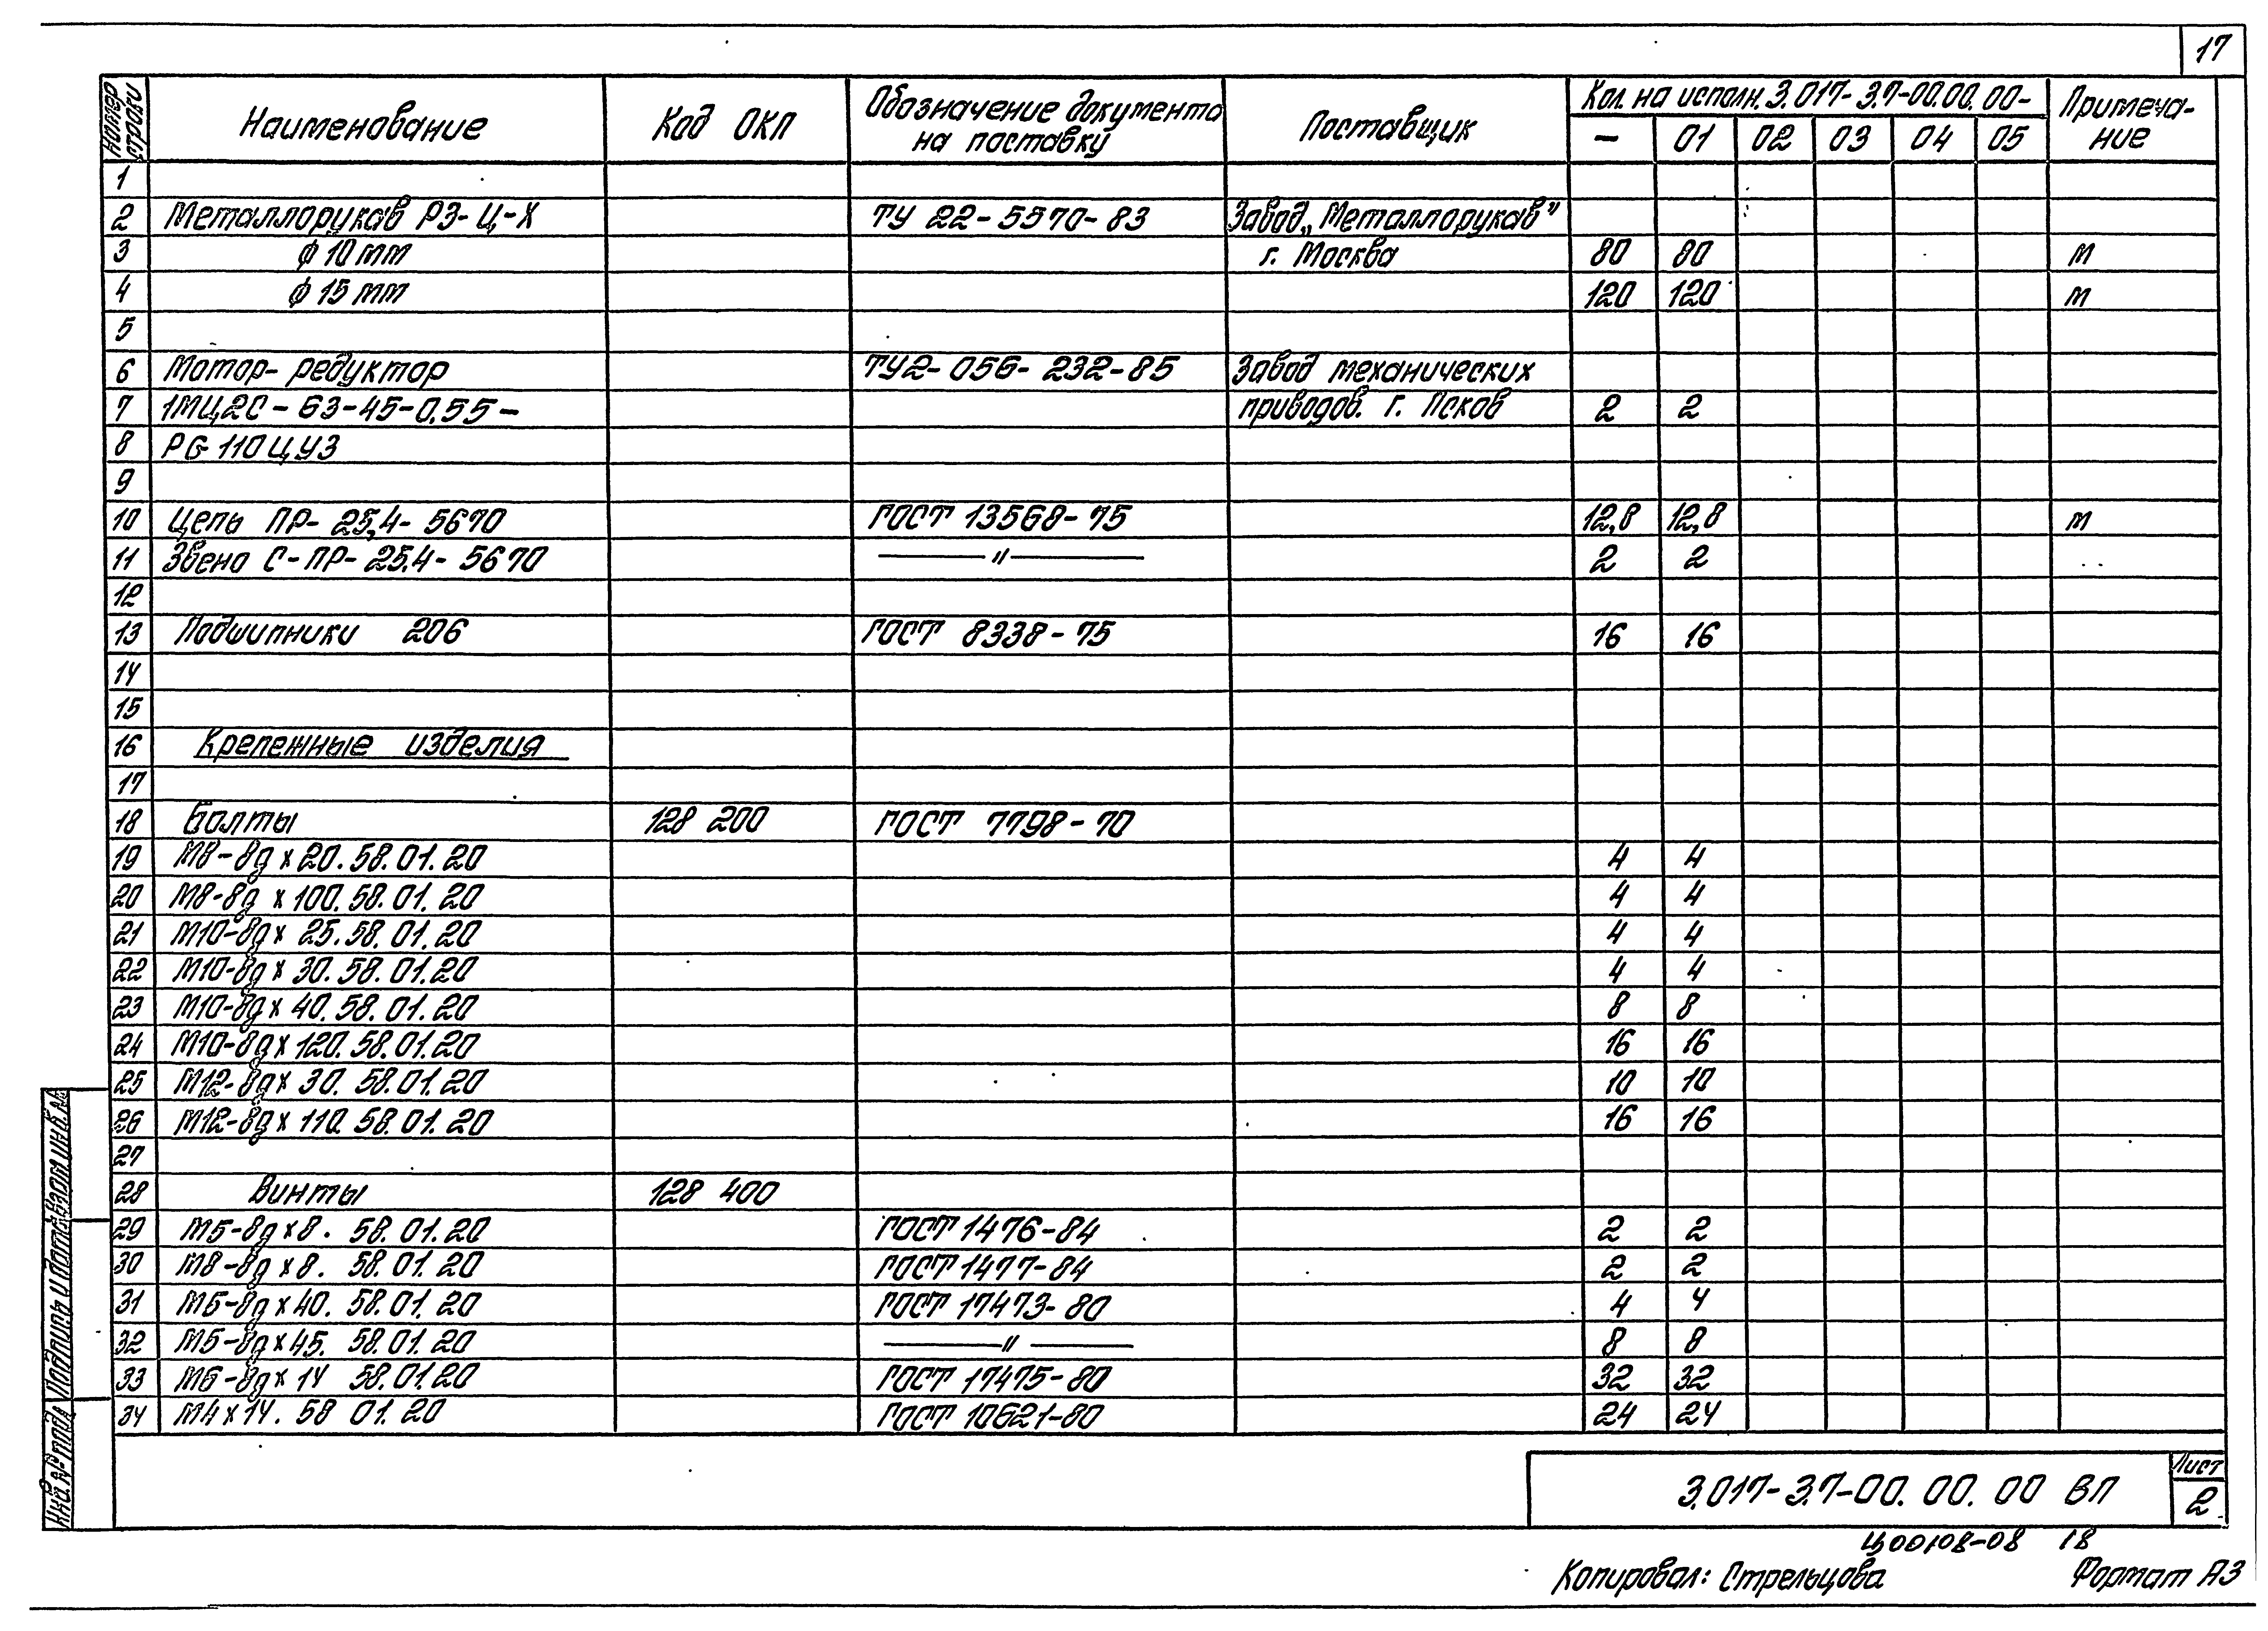 17
Номер строки Наименование Код ОКП Обозначение документа на поставку Поставщик Кол. на исполн. 3.017-3.7-00.00.00- Примечание
— 01 02 03 04 05
1
2 Металлорукав РЗ-Ц-Х ТУ 22-5570-83 Завод „Металлорукав"
3 ф 10 мм г. Москва 80 80 м
4 ф 15 мм 120 120 м
5
6 Мотор-редуктор ТУ2-056-232-85 Завод механических
7 1МЦ2С-63-45-0,55- приводов. г. Псков 2 2
8 РG 110 ЦУЗ
9
10 Цепь ПР-25,4-5670 ГОСТ 13568-75 12,8 12,8 м
11 Звено С-ПР-25.4-5670 —〃— 2 2
12
13 Подшипники 206 ГОСТ 8338-75 16 16
14
15
16 Крепежные изделия
17
18 Болты 128 200 ГОСТ 7798-70
19 М8-8gх20.58.01.20 4 4
20 М8-8gх100.58.01.20 4 4
21 М10-8gх25.58.01.20 4 4
22 М10-8gх30.58.01.20 4 4
23 М10-8gх40.58.01.20 8 8
24 М10-8gх120.58.01.20 16 16
25 М12-8gх30.58.01.20 10 10
26 М12-8gх110.58.01.20 16 16
27
28 Винты 128 400
29 М5-8gх8. 58.01.20 ГОСТ 1476-84 2 2
30 М8-8gх8. 58.01.20 ГОСТ 1477-84 2 2
31 М5-8gх40. 58.01.20 ГОСТ 17473-80 4 4
32 М5-8gх45. 58.01.20 —〃— 8 8
33 М6-8gх14 58.01.20 ГОСТ 17475-80 32 32
34 М4х14. 58 01.20 ГОСТ 10621-80 24 24
Инв. № подл. Подпись и дата Взам. инв. №
3.017-3.7-00.00.00 ВП Лист
2
Ц00108-08 18
Копировал: Стрельцова Формат А3